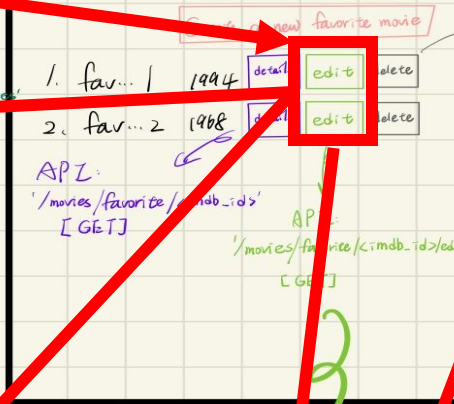 new favorite movie
1. fav... 1 1994 detail edit delete
2. fav... 2 1968 edit delete
API:
'/movies/favorite/<imdb_id>'
[GET]
API:
'/movies/favorite/<imdb_id>/ed
[GET]